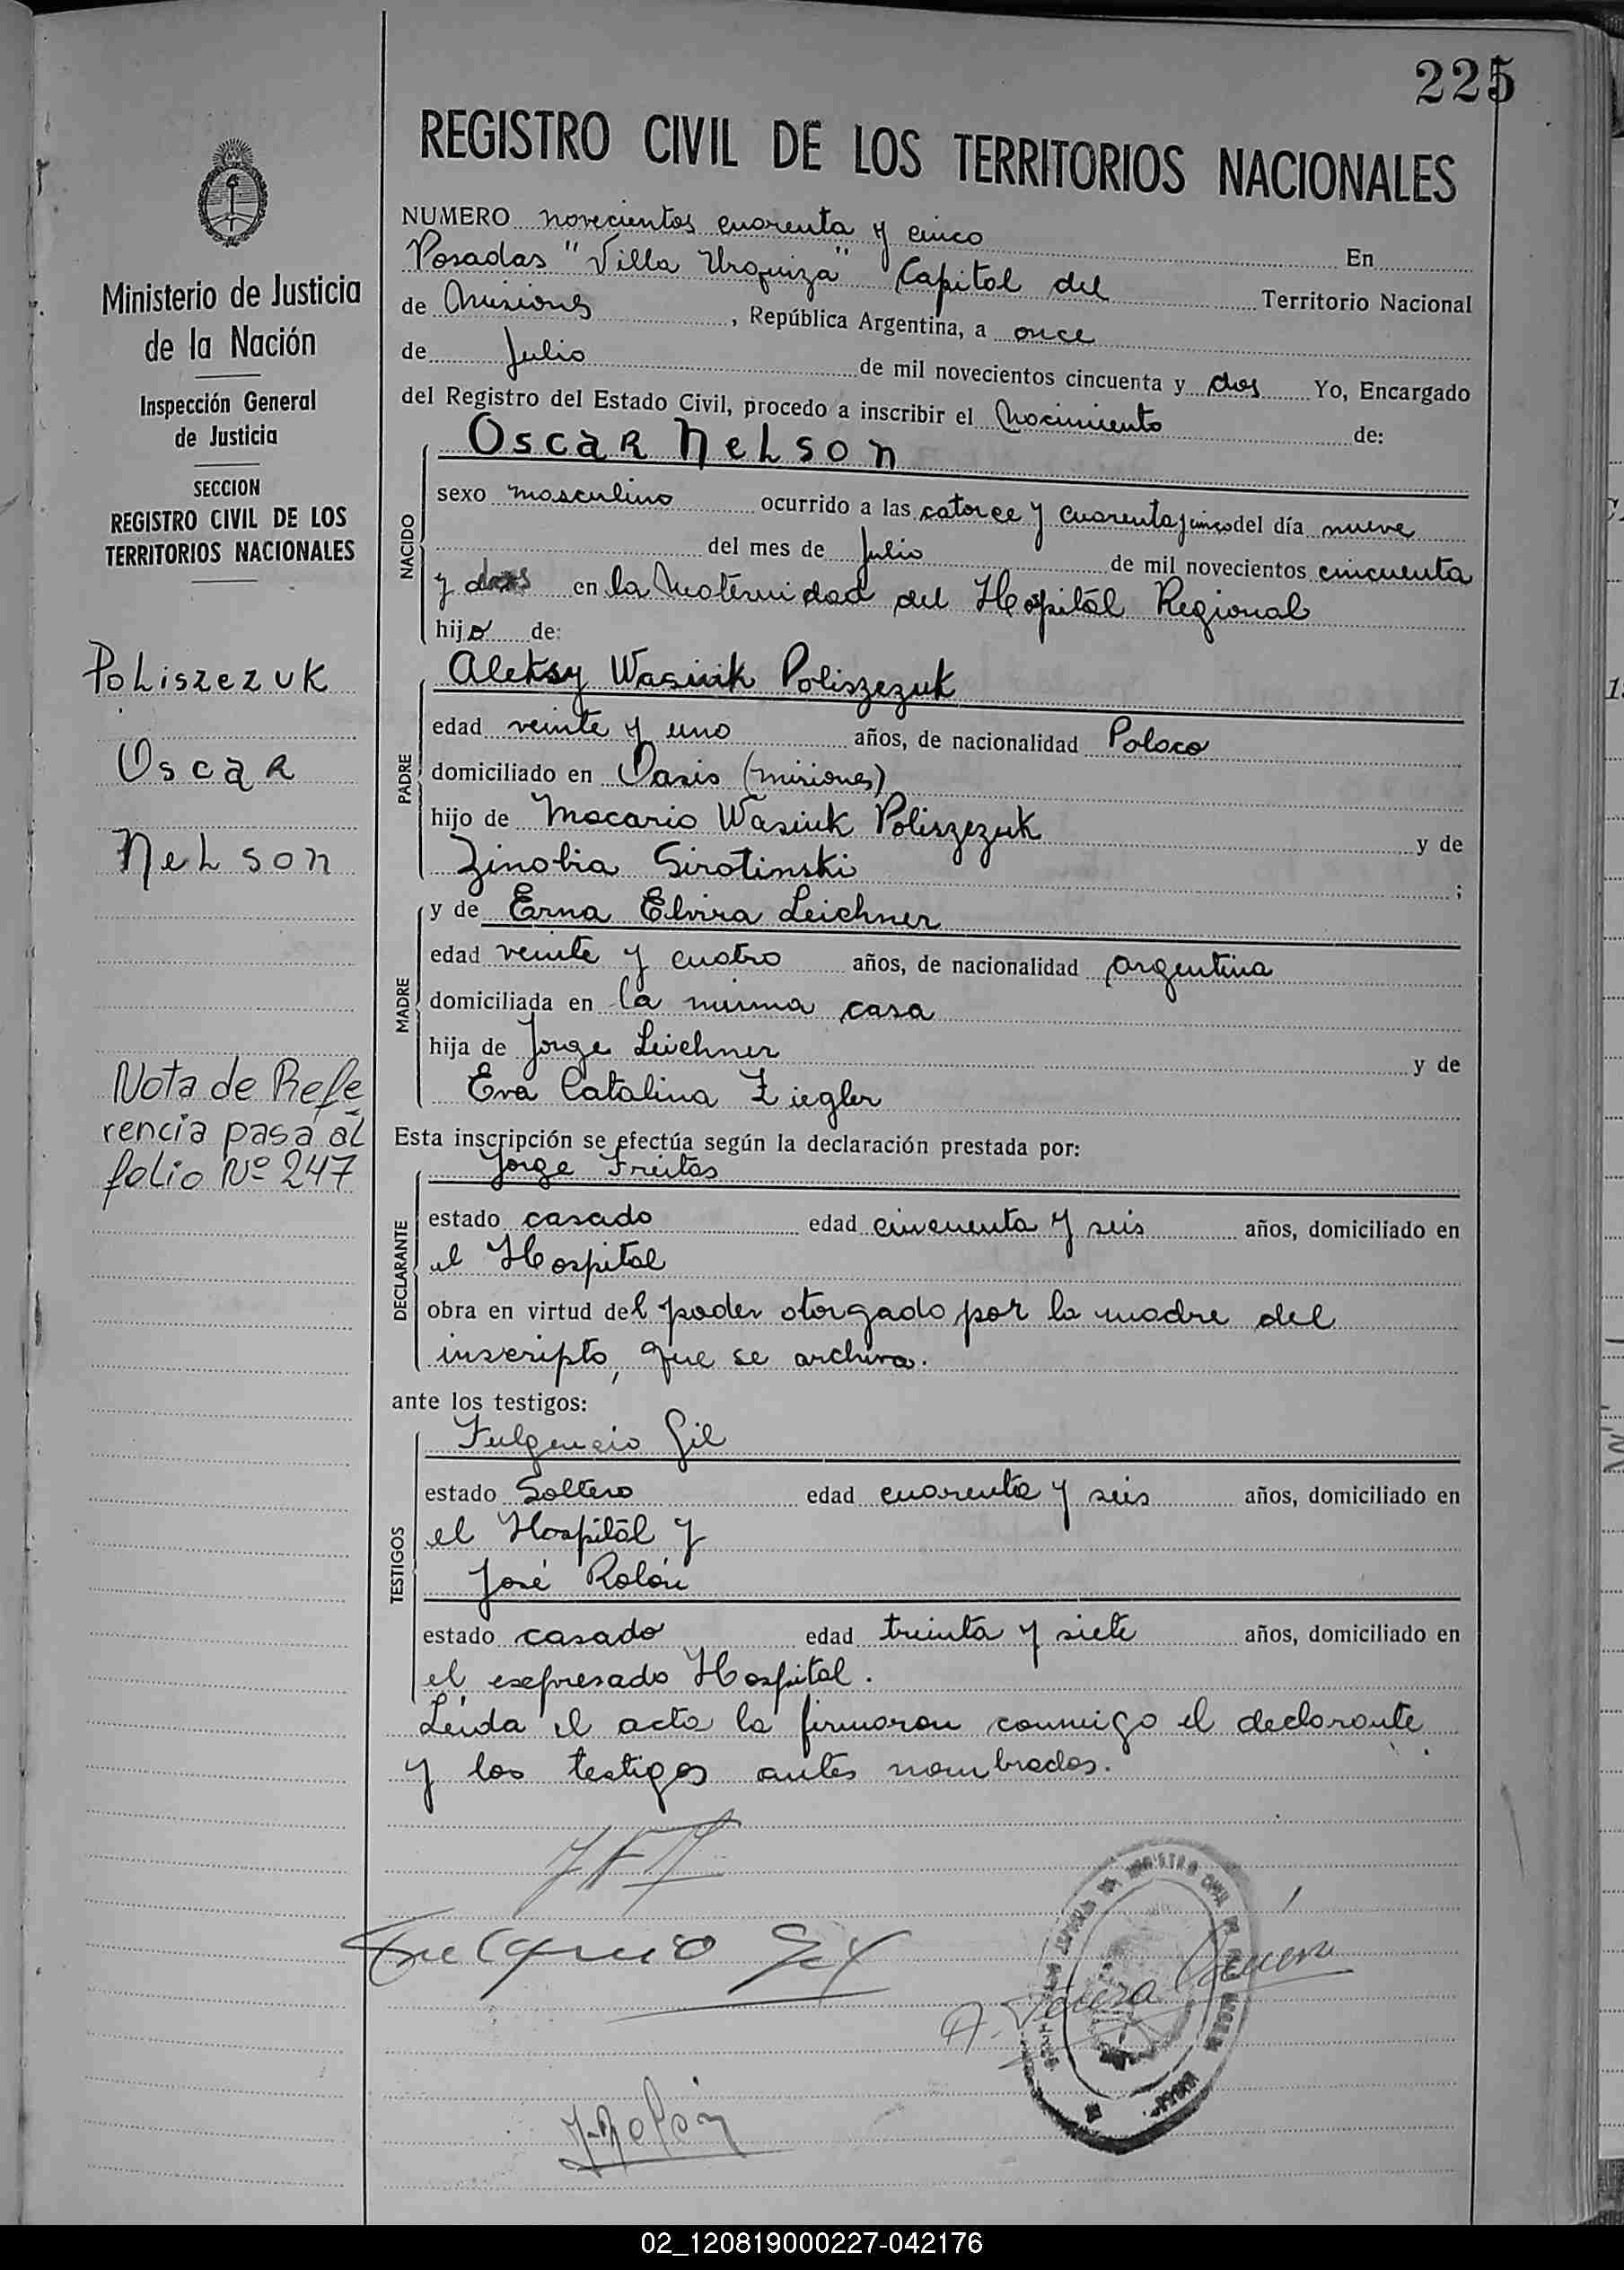 225
REGISTRO CIVIL DE LOS TERRITORIOS NACIONALES
Ministerio de Justicia
de la Nación
Inspección General
de Justicia
SECCION
REGISTRO CIVIL DE LOS
TERRITORIOS NACIONALES
Poliszezuk
Oscar
Nelson
Nota de Refe
rencia pasa al
folio Nº 247
NUMERO novecientos cuarenta y cinco En
Posadas "Villa Urquiza" Capital del Territorio Nacional
de Misiones, República Argentina, a once
de Julio de mil novecientos cincuenta y dos Yo, Encargado
del Registro del Estado Civil, procedo a inscribir el Nacimiento de:
Oscar Nelson
NACIDO
sexo masculino ocurrido a las catorce y cuarenta y cinco del día nueve
del mes de Julio de mil novecientos cincuenta
y dos en la Maternidad del Hospital Regional
hijo de:
Aleksy Wasiuk Poliszezuk
PADRE
edad veinte y uno años, de nacionalidad Polaco
domiciliado en Oasis (Misiones)
hijo de Macario Wasiuk Poliszezuk y de
Zinobia Sirotinski ;
y de Erna Elvira Leichner
MADRE
edad veinte y cuatro años, de nacionalidad argentina
domiciliada en la misma casa
hija de Jorge Leichner y de
Eva Catalina Ziegler
Esta inscripción se efectúa según la declaración prestada por:
Jorge Freitas
DECLARANTE
estado casado edad cincuenta y seis años, domiciliado en
el Hospital
obra en virtud del poder otorgado por la madre del
inscripto, que se archiva.
ante los testigos:
Fulgencio Gil
TESTIGOS
estado Soltero edad cuarenta y seis años, domiciliado en
el Hospital y
José Rolón
estado casado edad treinta y siete años, domiciliado en
el expresado Hospital.
Leida el acta la firmaron conmigo el declarante
y los testigos antes nombrados.
J. Rolón
02_120819000227-042176